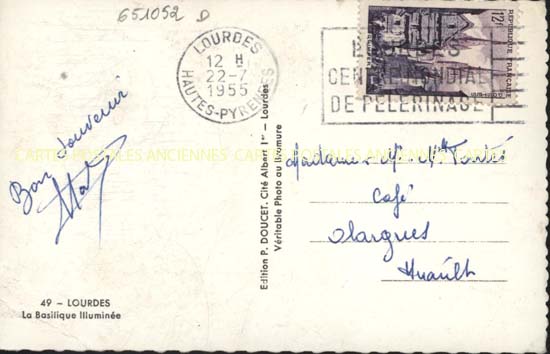 651052 D
LOURDES
12 H
22-7
1955
HAUTES-PYRENEES
LOURDES
CENTRE MONDIAL
DE PELERINAGE
12F
REPUBLIQUE FRANÇAISE
CARTES POSTALES ANCIENNES
Bon Souvenir
Edition P. DOUCET, Cité Albert 1er - Lourdes
Véritable Photo au Bromure
Madame - Mr - Mlle
Café
Olargues
Hérault
49 - LOURDES
La Basilique Illuminée